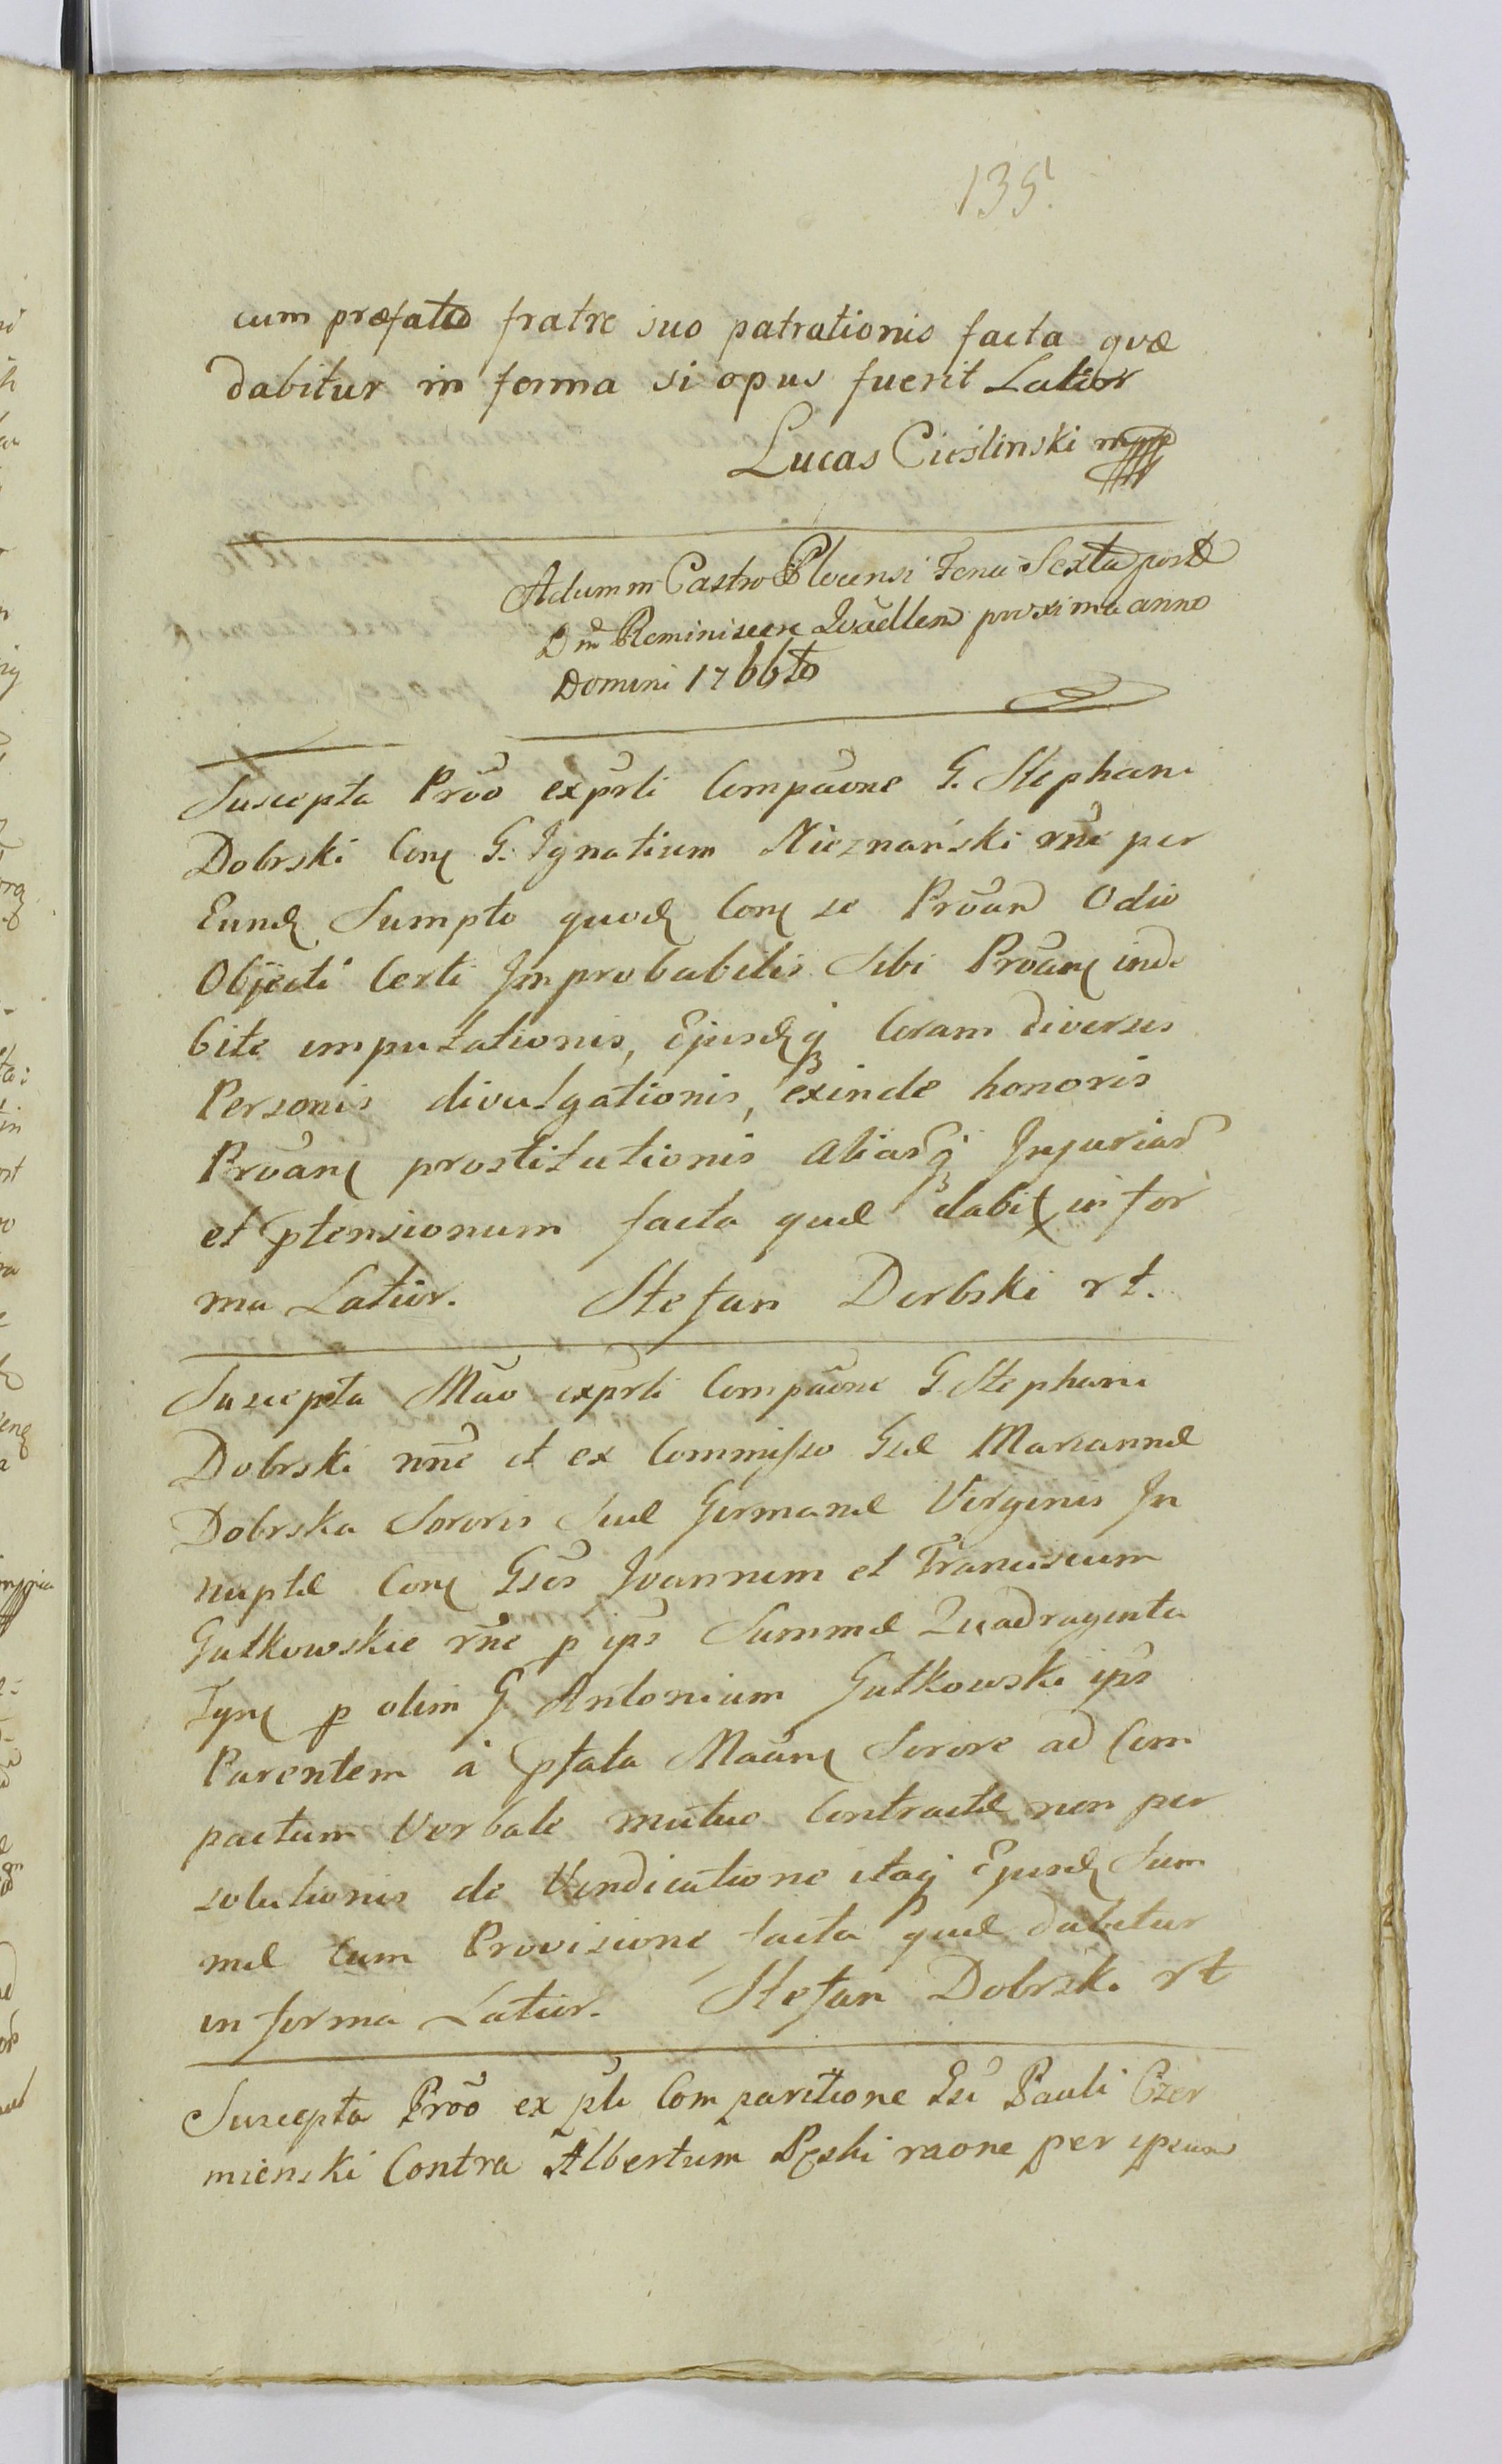 135.
cum præfato fratre suo patrationis facta quæ
dabitur in forma si opus fuerit Latior
Lucas Cieslinski mpp
Actum in Castro Plocensi Feria Sexta post
Dm̃ Reminiscere Quãdllem proxima anno
Domini 1766to
Suscepta Prõo exp̃rti Compãone G. Stephani
Dobrski Con G. Ignatium Nieznański rñe per
Eund Sumpto quod Con se Prõan Odio
Objecti Certi Improbabilis Sibi Prõan inde
bite imputationis, Ejusdq Coram diversis
Personis divulgationis, exinde honoris
Prõan prostitutionis aliarq Injuriar
et ptensionum facta quæ dabit in for
ma Latior. Stefan Dorbski rt.
Suscepta Mão exp̃rti Compãone G. Stephani
Dobrski nñe et ex Commisso Gsæ Mariannæ
Dobrska Sororis Suæ Germanæ Virginis In
nuptæ Con Gsos Joannem et Franciscum
Gutkowskie rñe p ips Summæ Quadraginta
Tyn p olim G Antonium Gutkowski ips
Parentem à pfata Mãan Sorore ad Com
pactum Verbale mutuo Contractæ non per
solutionis de Vindicatione itaq Ejusd Sum
mæ Cum Provisione facta quæ dabitur
in forma Latior. Stefan Dobrski rt
Suscepta Prõo ex pti Comparitione Gsi Pauli Czer
mienski Contra Albertum Pęski raone per ipsum